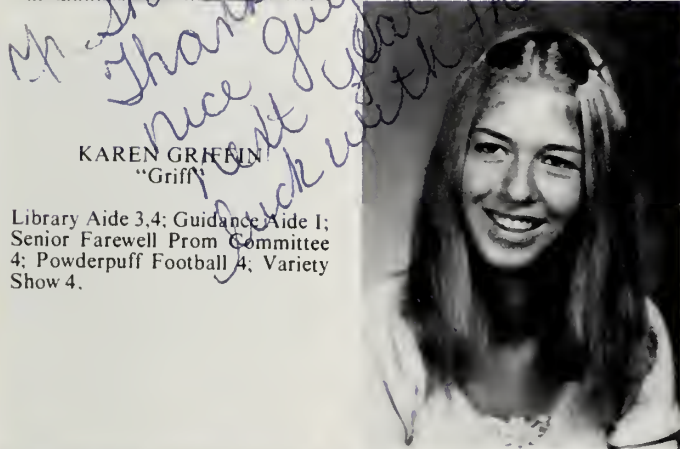 Thank
nice guy
next year
luck with the
KAREN GRIFFIN
“Griff”
Library Aide 3,4; Guidance Aide 1;
Senior Farewell Prom Committee
4; Powderpuff Football 4; Variety
Show 4.